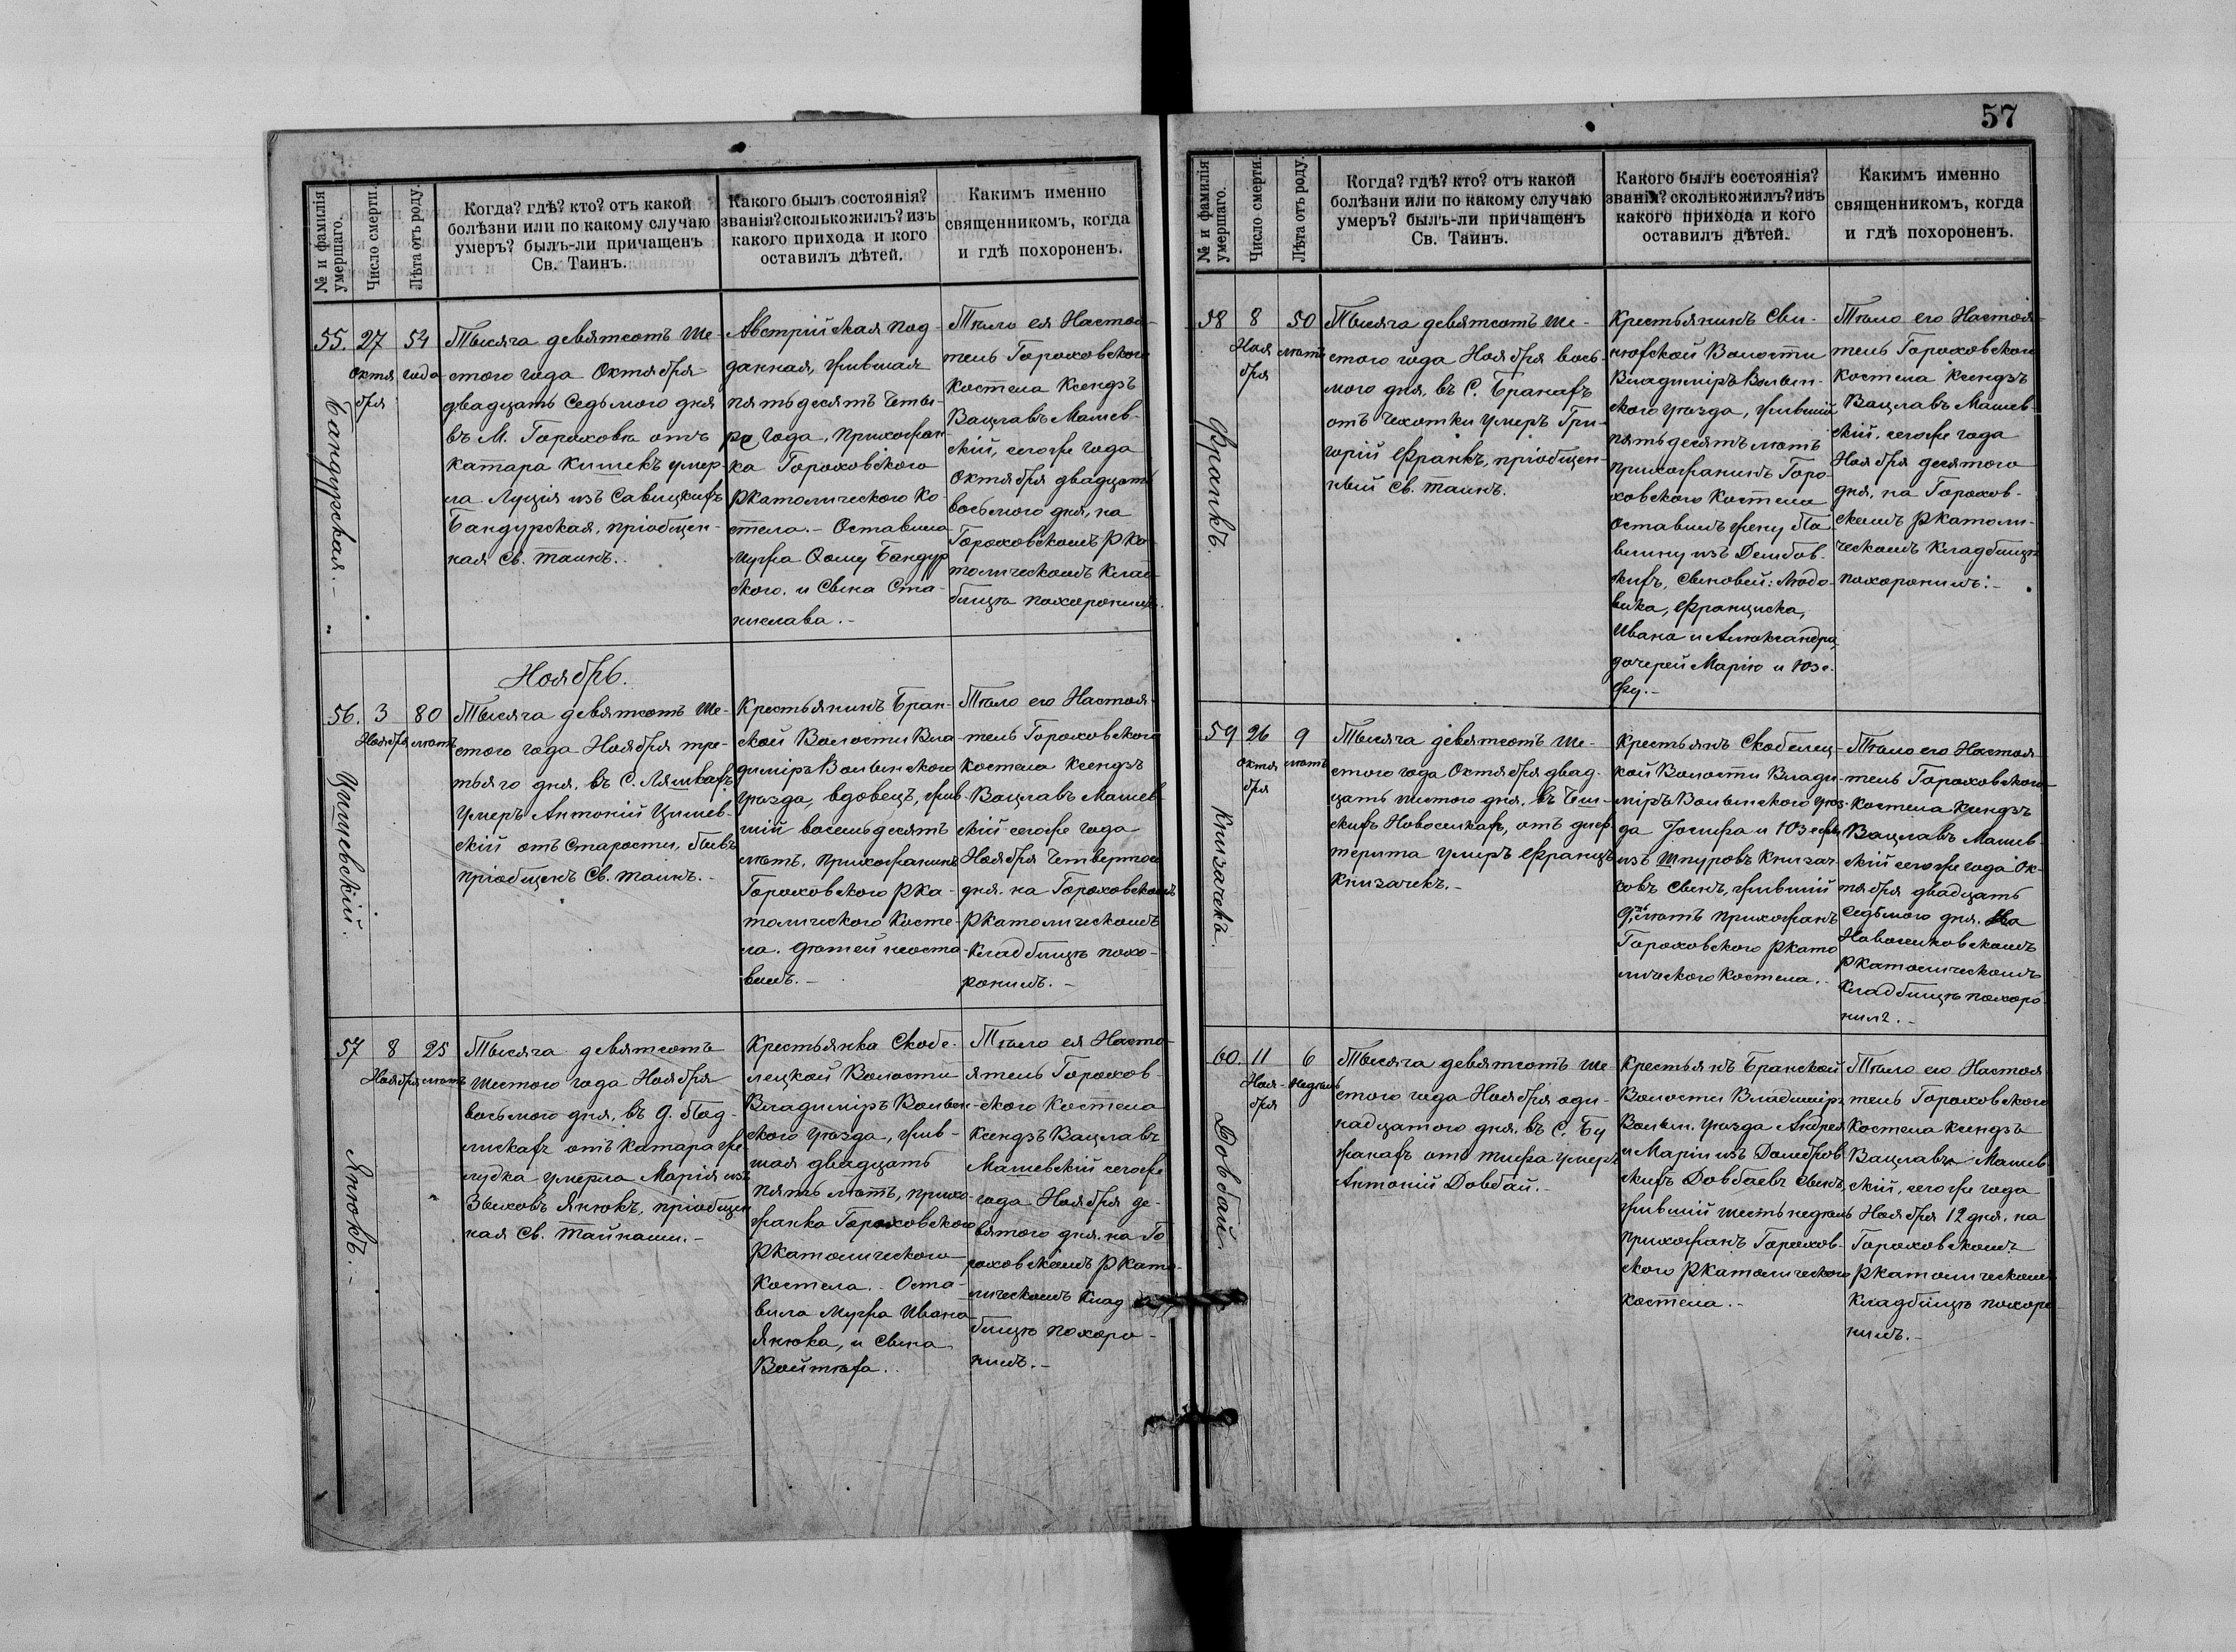 57
№ и фамилія
умершаго.
Число смерти.
Лѣта отъ роду.
Когда? гдѣ? кто? отъ какой
болѣзни или по какому случаю
умеръ? былъ-ли причащенъ
Св. Таинъ.
Какого былъ состоянія?
званія? сколько жилъ? изъ
какого прихода и кого
оставилъ дѣтей.
Какимъ именно
священникомъ, когда
и гдѣ похороненъ.
55.
Бандурская.-
27
октя
бря
54
года
Тысяча девятьсотъ ше-
стого года Октября
двадцать седьмого дня
въ М. Гороховѣ отъ
катара кишекъ умер-
ла Луція изъ Савицкихъ
Бандурская, пріобщен-
ная Св. таинъ..
Австрійская под-
данная, жившая
пятьдесятъ четы-
ре года, прихожан-
ка Гороховского
р католического Ко-
стела.- Оставила
мужа Ѳому Бандур
ского, и Сына Ста-
нислава.-
Тѣло ея Настоя-
тель Гороховского
костела Ксендзъ
Вацлавъ Машев-
скій, сегоже года
Октября двадцать
восьмого дня, на
Гороховскомъ р ка-
толическомъ клад-
бищѣ похоронилъ.
Ноябрь.
56.
Цишевскій.
3
Ноября
80
лѣтъ
Тысяча девятьсотъ ше-
стого года Ноября тре-
тьяго дня, въ С. Ляшкахъ
умеръ Антоній Цишев-
скій отъ старости, бывъ
пріобщенъ Св. таинъ.-
Крестьянинъ Бран-
ской Волости Вла
диміръ Волынского
уѣзда, вдовецъ, жив-
шій восемьдесятъ
лѣтъ, прихожанинъ
Гороховского р ка-
толического Косте-
ла. дѣтей неоста-
вилъ.-
Тѣло его Настоя-
тель Гороховского
Костела Ксендзъ
Вацлавъ Машев
скій сегоже года
Ноября Четвертого
дня, на Гороховскомъ
р католическомъ
Кладбищѣ похо-
ронилъ.-
57
Янюкъ.-
8
Ноября
25
лѣтъ
Тысяча девятьсотъ
шестого года Ноября
восьмого дня, въ д. Под-
лискахъ отъ катара же-
лудка умерла Марія изъ
Зыковъ Янюкъ, пріобщен
ная Св. Тайнами.-
Крестьянка Скобе-
лецкой Волости
Владиміръ Волын-
ского уѣзда, жив-
шая двадцать
пять лѣтъ, прихо-
жанка Гороховского
р католического
Костела.. Оста-
вила мужа Ивана
Янюка, и сына
Войтѣха..
Тѣло ея Насто-
ятель Горохов-
ского Костела
Ксендзъ Вацлавъ
Машевскій сегоже
года Ноября де-
вятого дня, на Го
роховскомъ р като-
лическомъ Клад
бищѣ похоро-
нилъ.-
№ и фамилія
умершаго.
Число смерти.
Лѣта отъ роду.
Когда? гдѣ? кто? отъ какой
болѣзни или по какому случаю
умеръ? былъ-ли причащенъ
Св. Таинъ.
Какого былъ состоянія?
званія? сколько жилъ? изъ
какого прихода и кого
оставилъ дѣтей.
Какимъ именно
священникомъ, когда
и гдѣ похороненъ.
58
Франкъ.
8
Ноя
бря
50
лѣтъ
Тысяча девятьсотъ ше-
стого года Ноября вось-
мого дня, въ С. Бранахъ
отъ чахотки умеръ Гри-
горій Франкъ, пріобщен-
ный Св. таинъ.
Крестьянинъ Сви-
нюхской Волости
Владиміръ Волын-
ского уѣзда, жившій
пятьдесятъ лѣтъ
прихожанинъ Горо-
ховского Костела
Оставилъ жену Па
влину изъ Дембов-
кихъ, сыновей: Людо-
вика, Франциска,
Ивана и Александра,
дочерей Марію и Юзе-
фу.-
Тѣло его Настоя-
тель Гороховского
Костела Ксендзъ
Вацлавъ Машев-
скій, сегоже года
Ноября десятого
дня, на Горохов-
скомъ р католи-
ческомъ Кладбищѣ
похоронилъ.-
59
Книзачекъ.
26
октя
бря
9
лѣтъ
Тысяча девятьсотъ ше-
стого года Октября двад-
цать шестого дня, въ Чеш-
скихъ Новоселкахъ, отъ диф-
терита умеръ Францъ
Книзачекъ.-
Крестьянъ Скобелец-
кой Волости Влади-
міръ Волынского уѣз-
да Іосифа и Юзефы
изъ Шпуровъ Книзач-
ковъ сынъ, жившій
9ть лѣтъ прихожанъ
Гороховского р като
лического Костела.-
Тѣло его Настоя
тель Гороховского
Костела Ксендзъ
Вацлавъ Машев-
скій сегоже года Ок-
тября двадцать
седьмого дня, на
Новоселковскомъ
р католическомъ
Кладбищѣ похоро
нилъ.-
60.
Довбай
11
Ноя-
бря
6
недѣль
Тысяча девятьсотъ ше
стого года Ноября оди-
надцатого дня, въ С. Бу
жанахъ отъ тифа умеръ
Антоній Довбай.-
Крестьянъ Бранской
Волости Владиміръ
Волын. уѣзда Андрея
и Маріи изъ Домбров
скихъ Довбаевъ сынъ,
жившій шесть недѣль
прихожанъ Горохов-
ского р католического
костела.-
Тѣло его Настоя
тель Гороховского
Костела Ксендзъ
Вацлавъ Машев
скій, сегоже года
Ноября 12 дня, на
Гороховскомъ
р католическомъ
Кладбищѣ похоро
нилъ.-